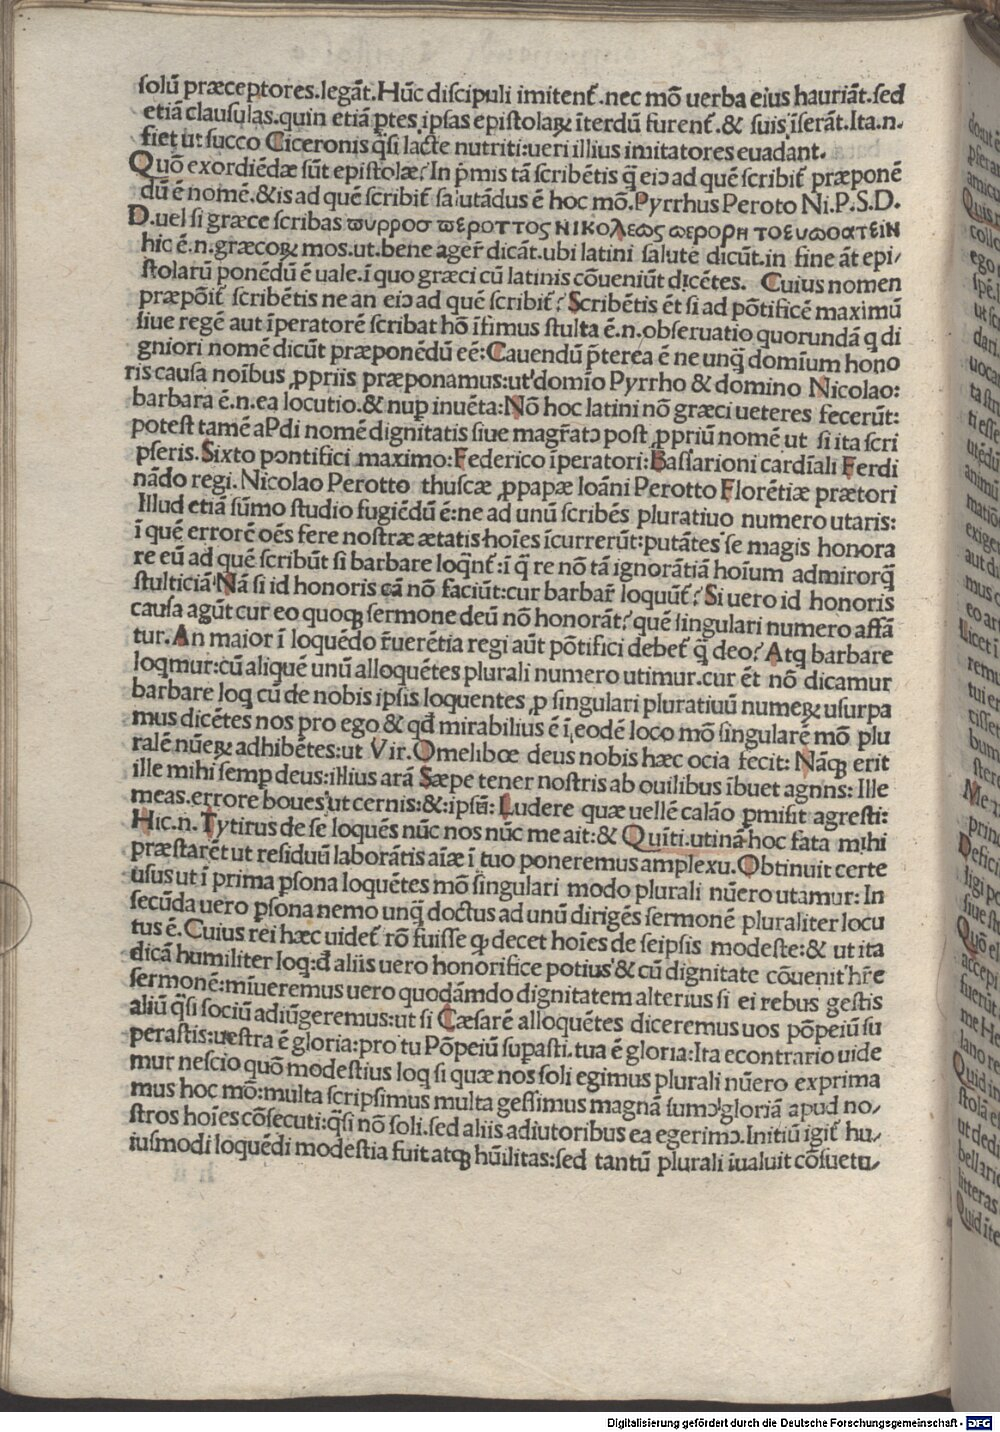 solũ præceptores.legãt.Hũc discipuli imitent᷑.nec mõ uerba eius hauriãt.sed
etiã clausulas.quin etiã ꝑtes ipsas epistolaꝝ ĩterdũ furent᷑.& suis ĩserãt.Ita.n.
fiet ut succo Ciceronis q̃si lacte nutriti:ueri illius imitatores euadant.
Quõ exordiẽdæ sũt epistolæ? In p̃mis tã scribẽtis q̃ eiꝰ ad quẽ scribit᷑ præponẽ
dũ ẽ nomẽ.&is ad quẽ scribit᷑ salutãdus ẽ hoc mõ.Pyrrhus Peroto Ni.P.S.D.
D.uel si græce scribas ϖυρροσ ϖεροττος ΝΙΚΟλεως ϖερορη τοευϖοατειΝ
hic ẽ.n.græcoꝝ mos.ut.bene ager᷑ dicãt.ubi latini salutẽ dicũt.in fine ãt epi/
stolarũ ponẽdũ ẽ uale.ĩ quo græci cũ latinis cõueniũt dicẽtes. Cuius nomen
præpõit᷑ scribẽtis ne an eiꝰ ad quẽ scribit᷑? Scribẽtis ẽt si ad põtificẽ maximũ
siue regẽ aut ĩperatorẽ scribat hõ ĩfimus stulta ẽ.n.obseruatio quorundã q di
gniori nomẽ dicũt præponẽdũ eẽ:Cauendũ p̃terea ẽ ne unq̃ domĩum hono
ris causa noĩbus ꝓpriis præponamus:ut domĩo Pyrrho & domino Nicolao:
barbara ẽ.n.ea locutio.& nuꝑ inuẽta:Nõ hoc latini nõ græci ueteres fecerũt:
potest tamẽ aPdi nomẽ dignitatis siue magr̃atꝰ post ꝓpriũ nomẽ ut si ita scri
pseris.Sixto pontifici maximo:Federico ĩperatori:Bassarioni cardĩali Ferdi
nãdo regi.Nicolao Perotto thuscæ ꝓpapæ Ioãni Perotto Florẽtiæ prætori
Illud etiã sũmo studio fugiẽdũ ẽ:ne ad unũ scribẽs pluratiuo numero utaris:
ĩ quẽ errorẽ oẽs fere nostræ ætatis hoĩes ĩcurrerũt:putãtes se magis honora
re eũ ad quẽ scribũt si barbare loqñt᷑:ĩ q̃ re nõ tã ignorãtiã hoĩum admirorq̃
stulticiã Nã si id honoris cã nõ faciũt:cur barbar᷑ loquũt᷑? Si uero id honoris
causa agũt cur eo quoqꝫ sermone deũ nõ honorãt? quẽ singulari numero affã
tur.An maior ĩ loquẽdo r̃uerẽtia regi aũt põtifici debet᷑ q̃ deo? Atq barbare
loqmur:cũ aliquẽ unũ alloquẽtes plurali numero utimur.cur ẽt nõ dicamur
barbare loq cũ de nobis ipsis loquentes ꝓ singulari pluratiuũ numeꝝ usurpa
mus dicẽtes nos pro ego & qđ mirabilius ẽ ĩ eodẽ loco mõ singularẽ mõ plu
ralẽ nũeꝝ adhibẽtes:ut Vir.Omelibœ deus nobis hæc ocia fecit: Nãqꝫ erit
ille mihi semꝑ deus:illius arã Sæpe tener nostris ab ouilibus ĩbuet agnns: Ille
meas.errore boues ut cernis:&:ipsũ: Ludere quæ uellẽ calão ꝑmisit agresti:
Hic.n.Tytirus de se loquẽs nũc nos nũc me ait:& Quĩti.utinã hoc fata mihi
præstarẽt ut residuũ laborãtis aĩæ ĩ tuo poneremus amplexu.Obtinuit certe
usus ut ĩ prima psona loquẽtes mõ singulari modo plurali nũero utamur: In
secũda uero psona nemo unq̃ doctus ad unũ dirigẽs sermonẽ pluraliter locu
tus ẽ.Cuius rei hæc uidet᷑ rõ fuisse ꝙ decet hoĩes de seipsis modeste:& ut ita
dicã humiliter loq:đ aliis uero honorifice potius & cũ dignitate cõuenit hr̃e
sermonẽ:mĩueremus uero quodãmdo dignitatem alterius si ei rebus gestis
aliũ q̃si sociũ adiũgeremus:ut si Cæsarẽ alloquẽtes diceremus uos põpeiũ su
perastis:uestra ẽ gloria:pro tu Põpeiũ supasti.tua ẽ gloria:Ita econtrario uide
mur nescio quõ modestius loq si quæ nos soli egimus plurali nũero exprima
mus hoc mõ:multa scripsimus multa gessimus magnã sumꝰ gloriã apud no/
stros hoĩes cõsecuti:q̃si nõ soli.sed aliis adiutoribus ea egerimꝰ.Initiũ igit᷑ hu/
iusmodi loquẽdi modestia fuit atqꝫ hũilitas:sed tantũ plurali ĩualuit cõsuetu/
Digitalisierung gefördert durch die Deutsche Forschungsgemeinschaft - DFG